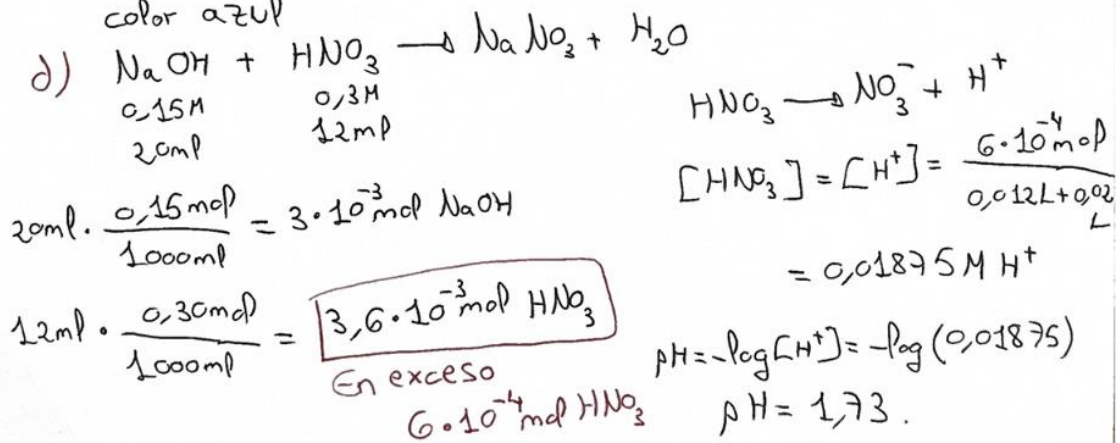 color azul
d) NaOH + HNO₃ → NaNO₃ + H₂O
0,15M 0,3M
20ml 12ml
20ml · 0,15mol / 1000ml = 3·10⁻³ mol NaOH
12ml · 0,30mol / 1000ml = 3,6·10⁻³ mol HNO₃
En exceso
6·10⁻⁴ mol HNO₃
HNO₃ → NO₃⁻ + H⁺
[HNO₃] = [H⁺] = 6·10⁻⁴ mol / 0,012L + 0,02 L
= 0,01875 M H⁺
pH = -log[H⁺] = -log (0,01875)
pH = 1,73.